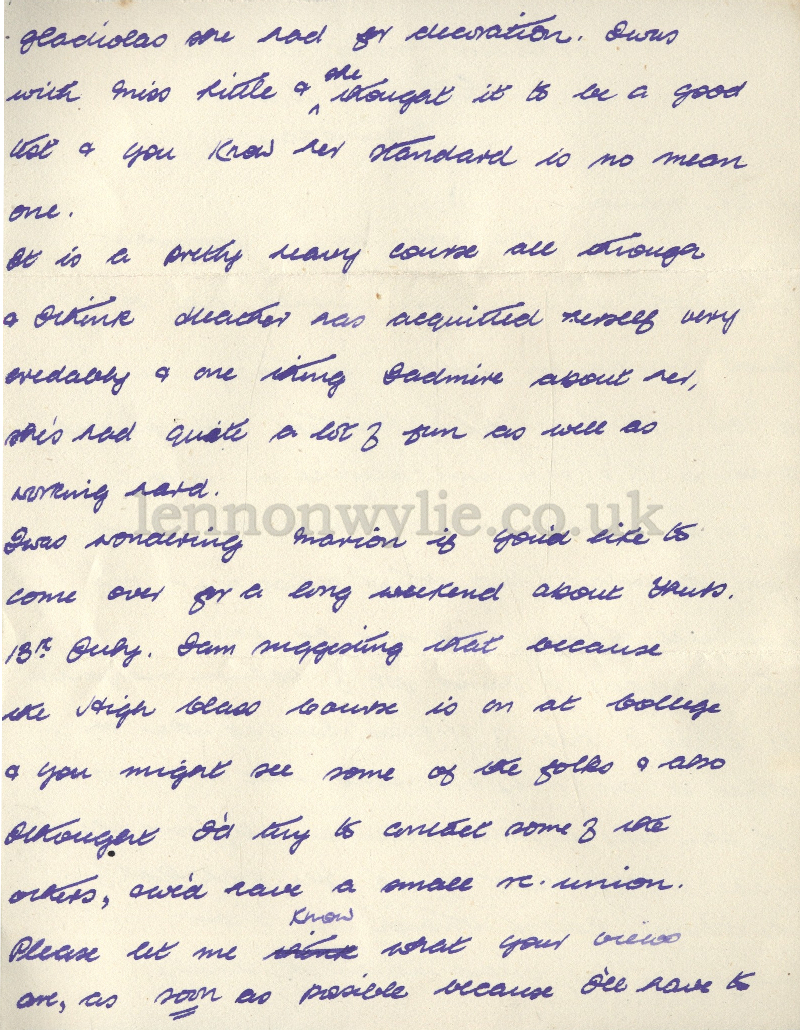 gladiolas she had for decoration. I was
with Miss Little & she thought it to be a good
lot & you know her standard is no mean
one.
It is a pretty heavy course all through
& I think Heather has acquitted herself very
credably & one thing I admire about her,
she's had quite a lot of fun as well as
working hard.
lennonwylie.co.uk
I was wondering Marion if you'd like to
come over for a long weekend about Thurs.
13th July. I am suggesting that because
the High Class Course is on at College
& you might see some of the folks & also
I thought I'd try to contact some of the
others, & we'd have a small re-union.
Please let me think know what your views
are, as soon as possible because I'll have to